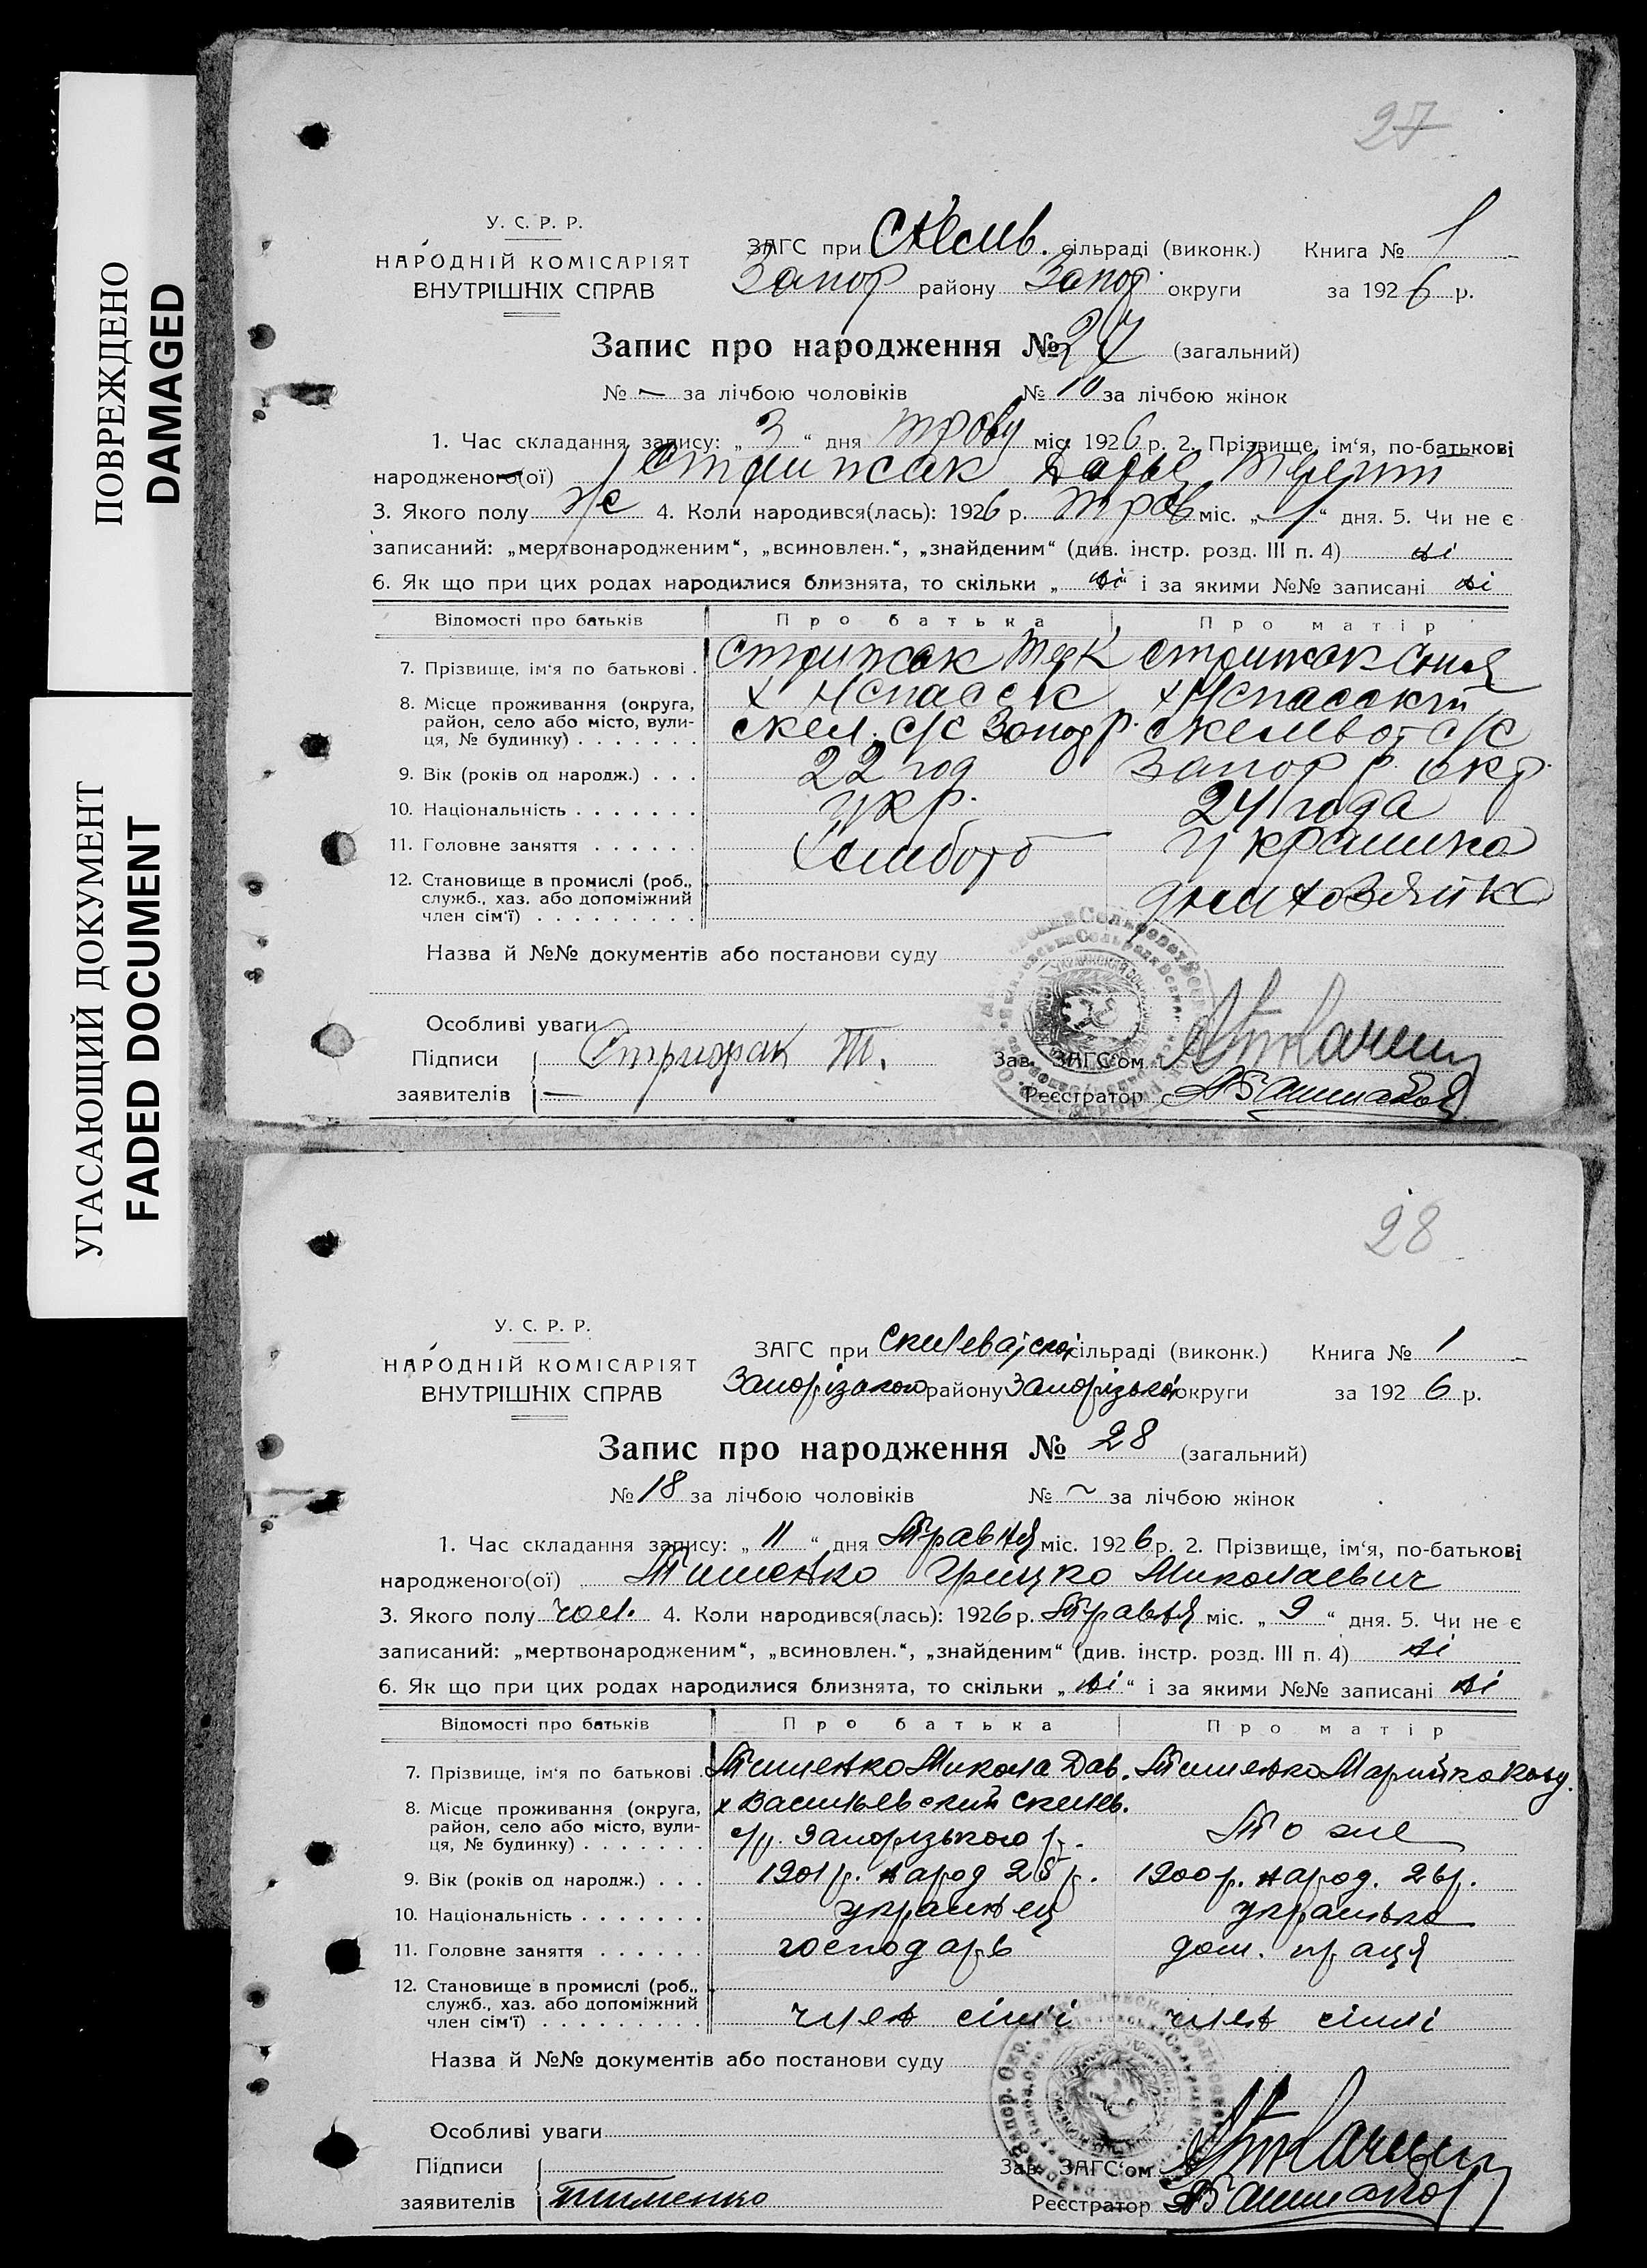 ПОВРЕЖДЕНО
DAMAGED
УГАСАЮЩИЙ ДОКУМЕНТ
FADED DOCUMENT
27
У. С. Р. Р.
НАРОДНІЙ КОМІСАРІЯТ
ВНУТРІШНІХ СПРАВ
ЗАГС при сільраді (виконк.) Книга № 1
Запор району Запор округи за 1926 р.
Запис про народження № 27 (загальний)
№ – за лічбою чоловіків № 10 за лічбою жінок
1. Час складання запису: „ 3 “ дня траву міс. 1926 р. 2. Прізвище, ім‘я, по-батькові
народженого(ої) Стрижак Дарья
3. Якого полу ж 4. Коли народився(лась): 1926 р. трав міс. „ 1 “ дня. 5. Чи не є
записаний: „мертвонародженим“, „всиновлен.“, „знайденим“ (див. інстр. розд. III п. 4) ні
6. Як що при цих родах народилися близнята, то скільки „ ні і за якими №№ записані ні
Відомості про батьків Про батька Про матір
7. Прізвище, ім‘я по батькові . Стрижак Стрижак
8. Місце проживання (округа,
район, село або місто, вули-
ця, № будинку) . . . . . . . скел. с/с Запор р. с/с
9. Вік (років од народж.) . . . 22 год Запор р. окр.
10. Національність . . . . . . . укр. 24 года
11. Головне заняття . . . . . . Хлибороб
12. Становище в промислі (роб.,
служб., хаз. або допоміжний
член сім‘ї) . . . . . . . . .
Назва й №№ документів або постанови суду
Особливі уваги
Підписи Стрижак Т.
заявителів –
Зав. ЗАГС‘ом
Реєстратор
28
У. С. Р. Р.
НАРОДНІЙ КОМІСАРІЯТ
ВНУТРІШНІХ СПРАВ
ЗАГС при сільраді (виконк.) Книга № 1
Запорізького району Запорізької округи за 1926 р.
Запис про народження № 28 (загальний)
№ 18 за лічбою чоловіків № ~ за лічбою жінок
1. Час складання запису: „ 11 “ дня Травня міс. 1926 р. 2. Прізвище, ім‘я, по-батькові
народженого(ої) Тименко Грицко Миколаевич
3. Якого полу чол. 4. Коли народився(лась): 1926 р. Травня міс. „ 9 “ дня. 5. Чи не є
записаний: „мертвонародженим“, „всиновлен.“, „знайденим“ (див. інстр. розд. III п. 4) ні
6. Як що при цих родах народилися близнята, то скільки „ ні “ і за якими №№ записані ні
Відомості про батьків Про батька Про матір
7. Прізвище, ім‘я по батькові . Тименко Микола Дав. Тименко Марийка
8. Місце проживання (округа, х Васильевский скилев.
район, село або місто, вули-
ця, № будинку) . . . . . . . с/р. Запорізького р. То же
9. Вік (років од народж.) . . . 1901 р. народ 25 р. 1900 р. народ. 26 р.
10. Національність . . . . . . . украинец украінка
11. Головне заняття . . . . . . господарь дом. праця
12. Становище в промислі (роб.,
служб., хаз. або допоміжний
член сім‘ї) . . . . . . . . . член сімї член сімї
Назва й №№ документів або постанови суду
Особливі уваги
Підписи
заявителів Тименко
Зав. ЗАГС‘ом
Реєстратор